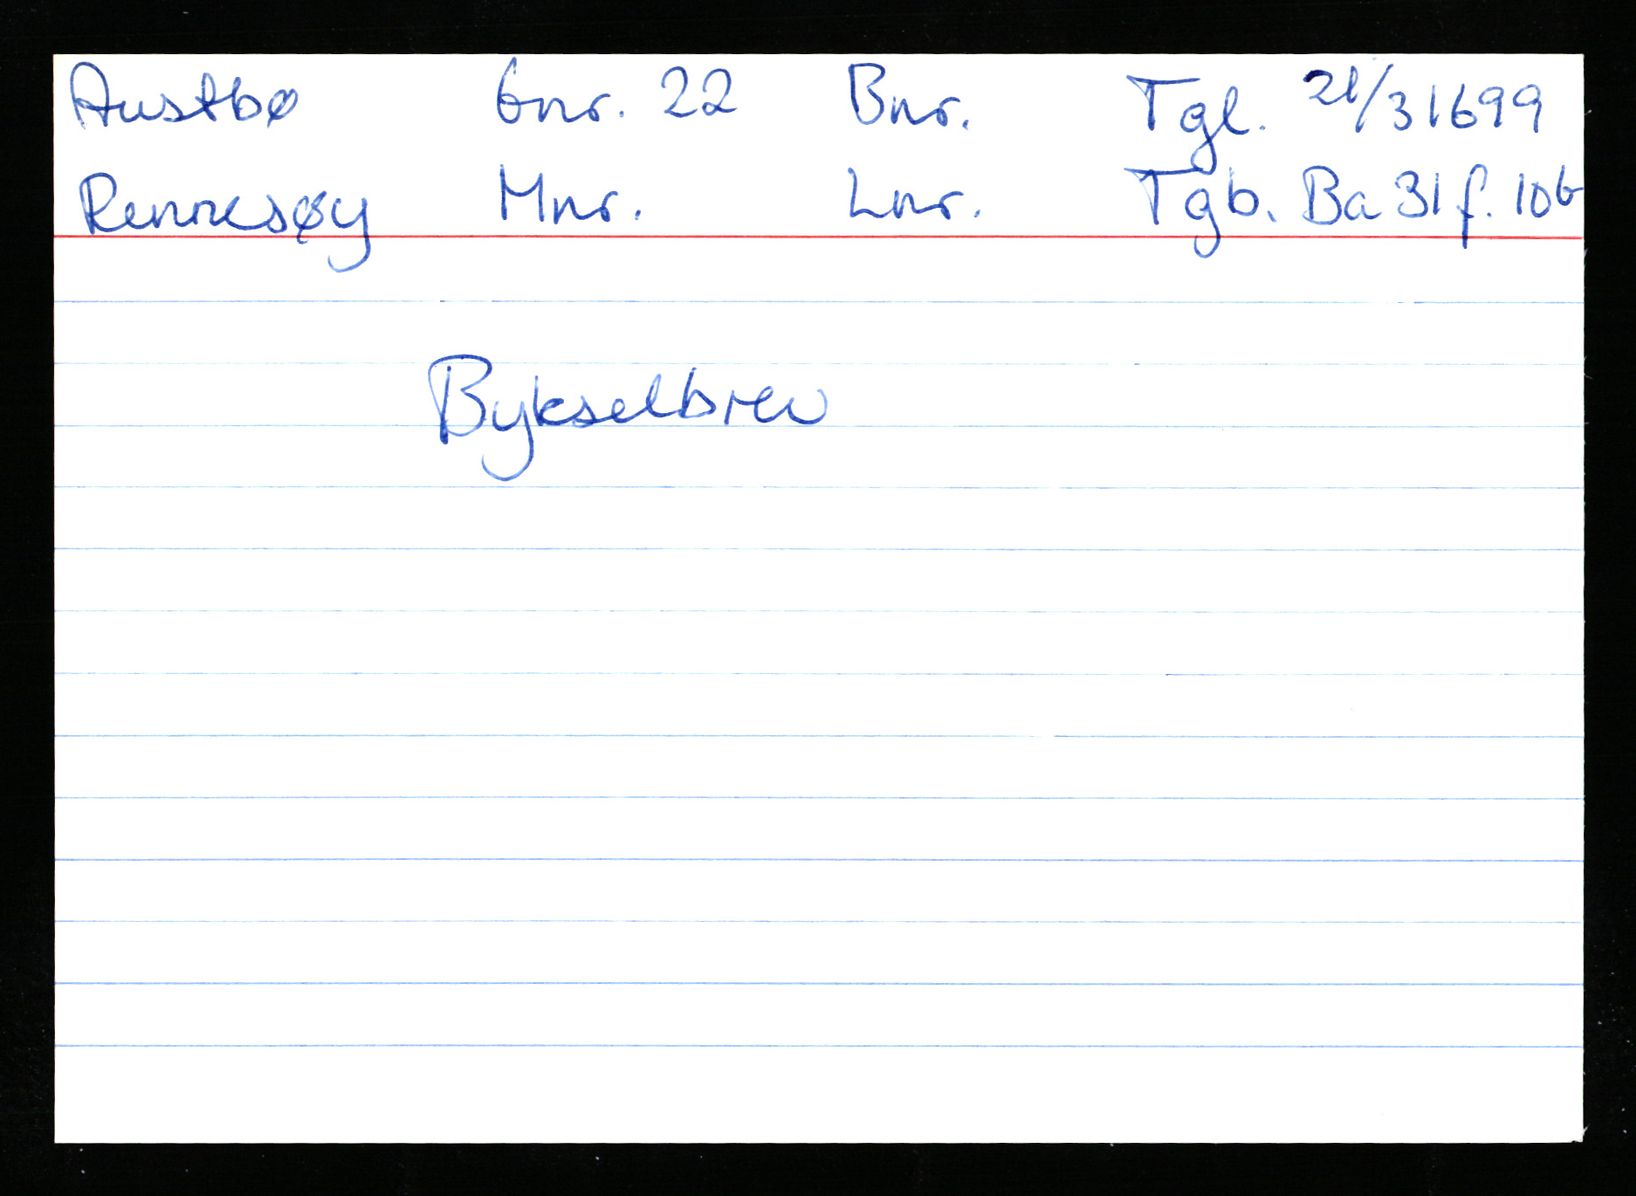 Austbø Gnr. 22 Bnr. Tgl. 21/3 1699
Rennesøy Mnr. Lnr. Tgb. Ba 31 f. 10b
Bykselbrev